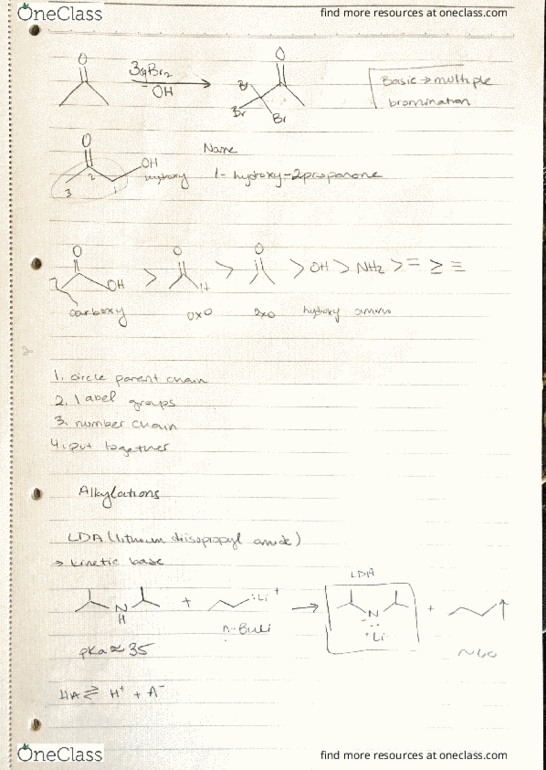 OneClass
find more resources at oneclass.com
O
3eqBr2
-OH
O
Br
Br
Br
Basic → multiple
bromination
O
OH
hydroxy
2
1
3
Name
1-hydroxy-2propanone
O
OH > O H > O > OH > NH2 > = ≥ ≡
carboxy oxo oxo hydroxy amino
1. circle parent chain
2. label groups
3. number chain
4. put together
Alkylations
LDA (lithium diisopropyl amide)
→ kinetic base
LDA
N H + :Li+ → N Li + ↑
n-BuLi
pKa ≈ 35
~60
HA ⇌ H+ + A-
OneClass
find more resources at oneclass.com